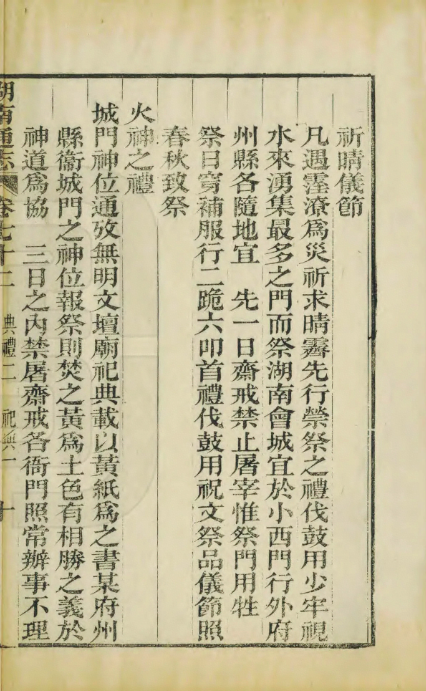 祈晴儀節
凡遇霪潦爲災祈求晴霽先行禜祭之禮伐鼓用少牢視
水來湧集最多之門而祭湖南會城宜於小西門行外府
州縣各隨地宜　先一日齋戒禁止屠宰惟祭門用牲
祭日穿補服行二跪六叩首禮伐鼓用祝文祭品儀節照
春秋致祭
火神之禮
城門神位通攷無明文壇廟祀典載以黃紙爲之書某府州
縣衞城門之神位報祭則焚之黃爲土色有相勝之義於
神道爲協　三日之內禁屠齋戒各衙門照常辦事不理
湖南通志　卷七十二　典禮二　祀典二　十